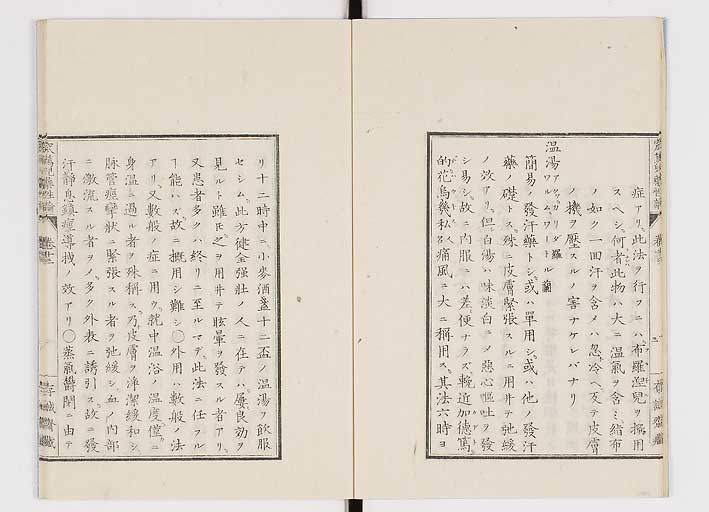 症アリ、此法ヲ行フニハ布羅涅兒ヲ撰用
スヘシ、何者此物ハ大ニ温氣ヲ含ミ緒布
ノ如ク一回汗ヲ含メハ忽冷ヘ反テ皮膚
ノ機ヲ壓スルノ害ナケレバナリ
温湯アクワ、カリダ羅 ワルム、ワートル蘭
簡易ノ發汗藥トシ、或ハ單用シ、或ハ他ノ發汗
藥ノ礎トス、殊ニ皮膚緊張スルニ用井テ弛緩
ノ效アリ、但白湯ハ味淡白ニメ惡心嘔吐ヲ發
シ易シ、故ニ内服ニハ差便ナラズ、輓近加德篤
的花烏幾私痛風ニ大ニ稱用ス、其法六時ヨ
リ十二時中ニ、小麥酒盞十二盃ノ温湯ヲ飲服
セシム、此方健全強壯ノ人ニ在テハ屢良効ヲ
見ルト雖氏之ヲ用井テ眩暈ヲ發スル者アリ、
又患者多クハ終リニ至ルマデ、此法ニ任フル
ヿ能ハズ、故ニ概用シ難シ〇外用ハ數般ノ法
アリ、又數般ノ症ニ用ウ、就中温浴ノ温度僅ニ
身温ニ過ル者ヲ殊稱ス、乃皮膚ヲ淨潔緩和シ、
脉管痙攣狀ニ緊張スル者ヲ弛緩シ、血ノ内部
ニ激流スル者ヲメ多ク外表ニ誘引ス、故ニ發
汗靜息鎭痙導拭ノ效アリ〇蒸氣欝閉ニ由テ